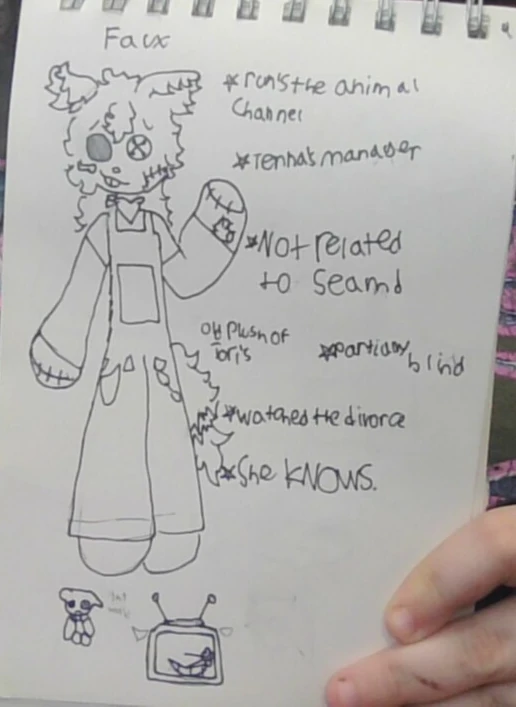 Faux
*runs the animal
Channel
*Tenna's manager
*Not related
to Seam!
Old Plush of
Tori's
*partially blind
*watched the divorce
*She KNOWS.